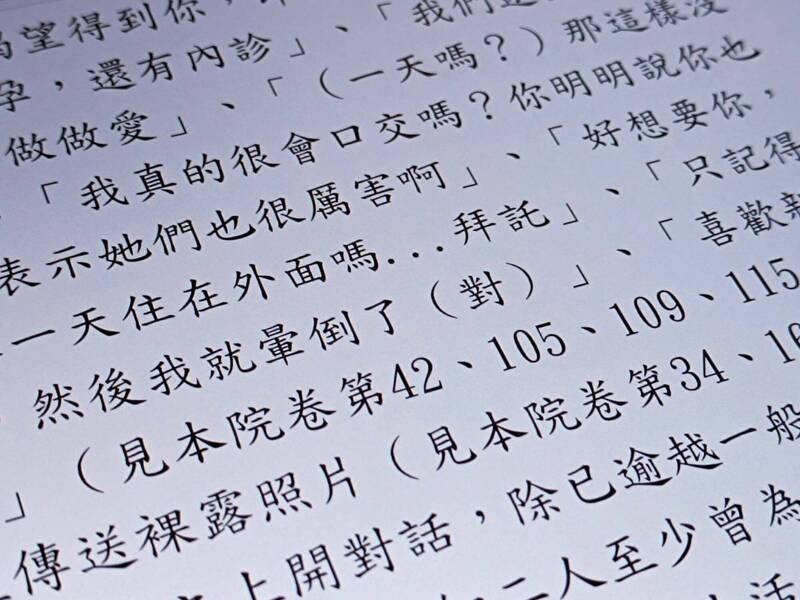 渴望得到你,
孕,還有內診」、「我們
做做愛」、「(一天嗎?)那這樣沒
「我真的很會口交嗎?你明明說你也
表示她們也很厲害啊」、「好想要你,
一天住在外面嗎...拜託」、「只記得
然後我就暈倒了(對)」、「喜歡
」(見本院卷第42、105、109、115
傳送裸露照片(見本院卷第34、
上開對話,除已逾越一般
二人至少曾為
活